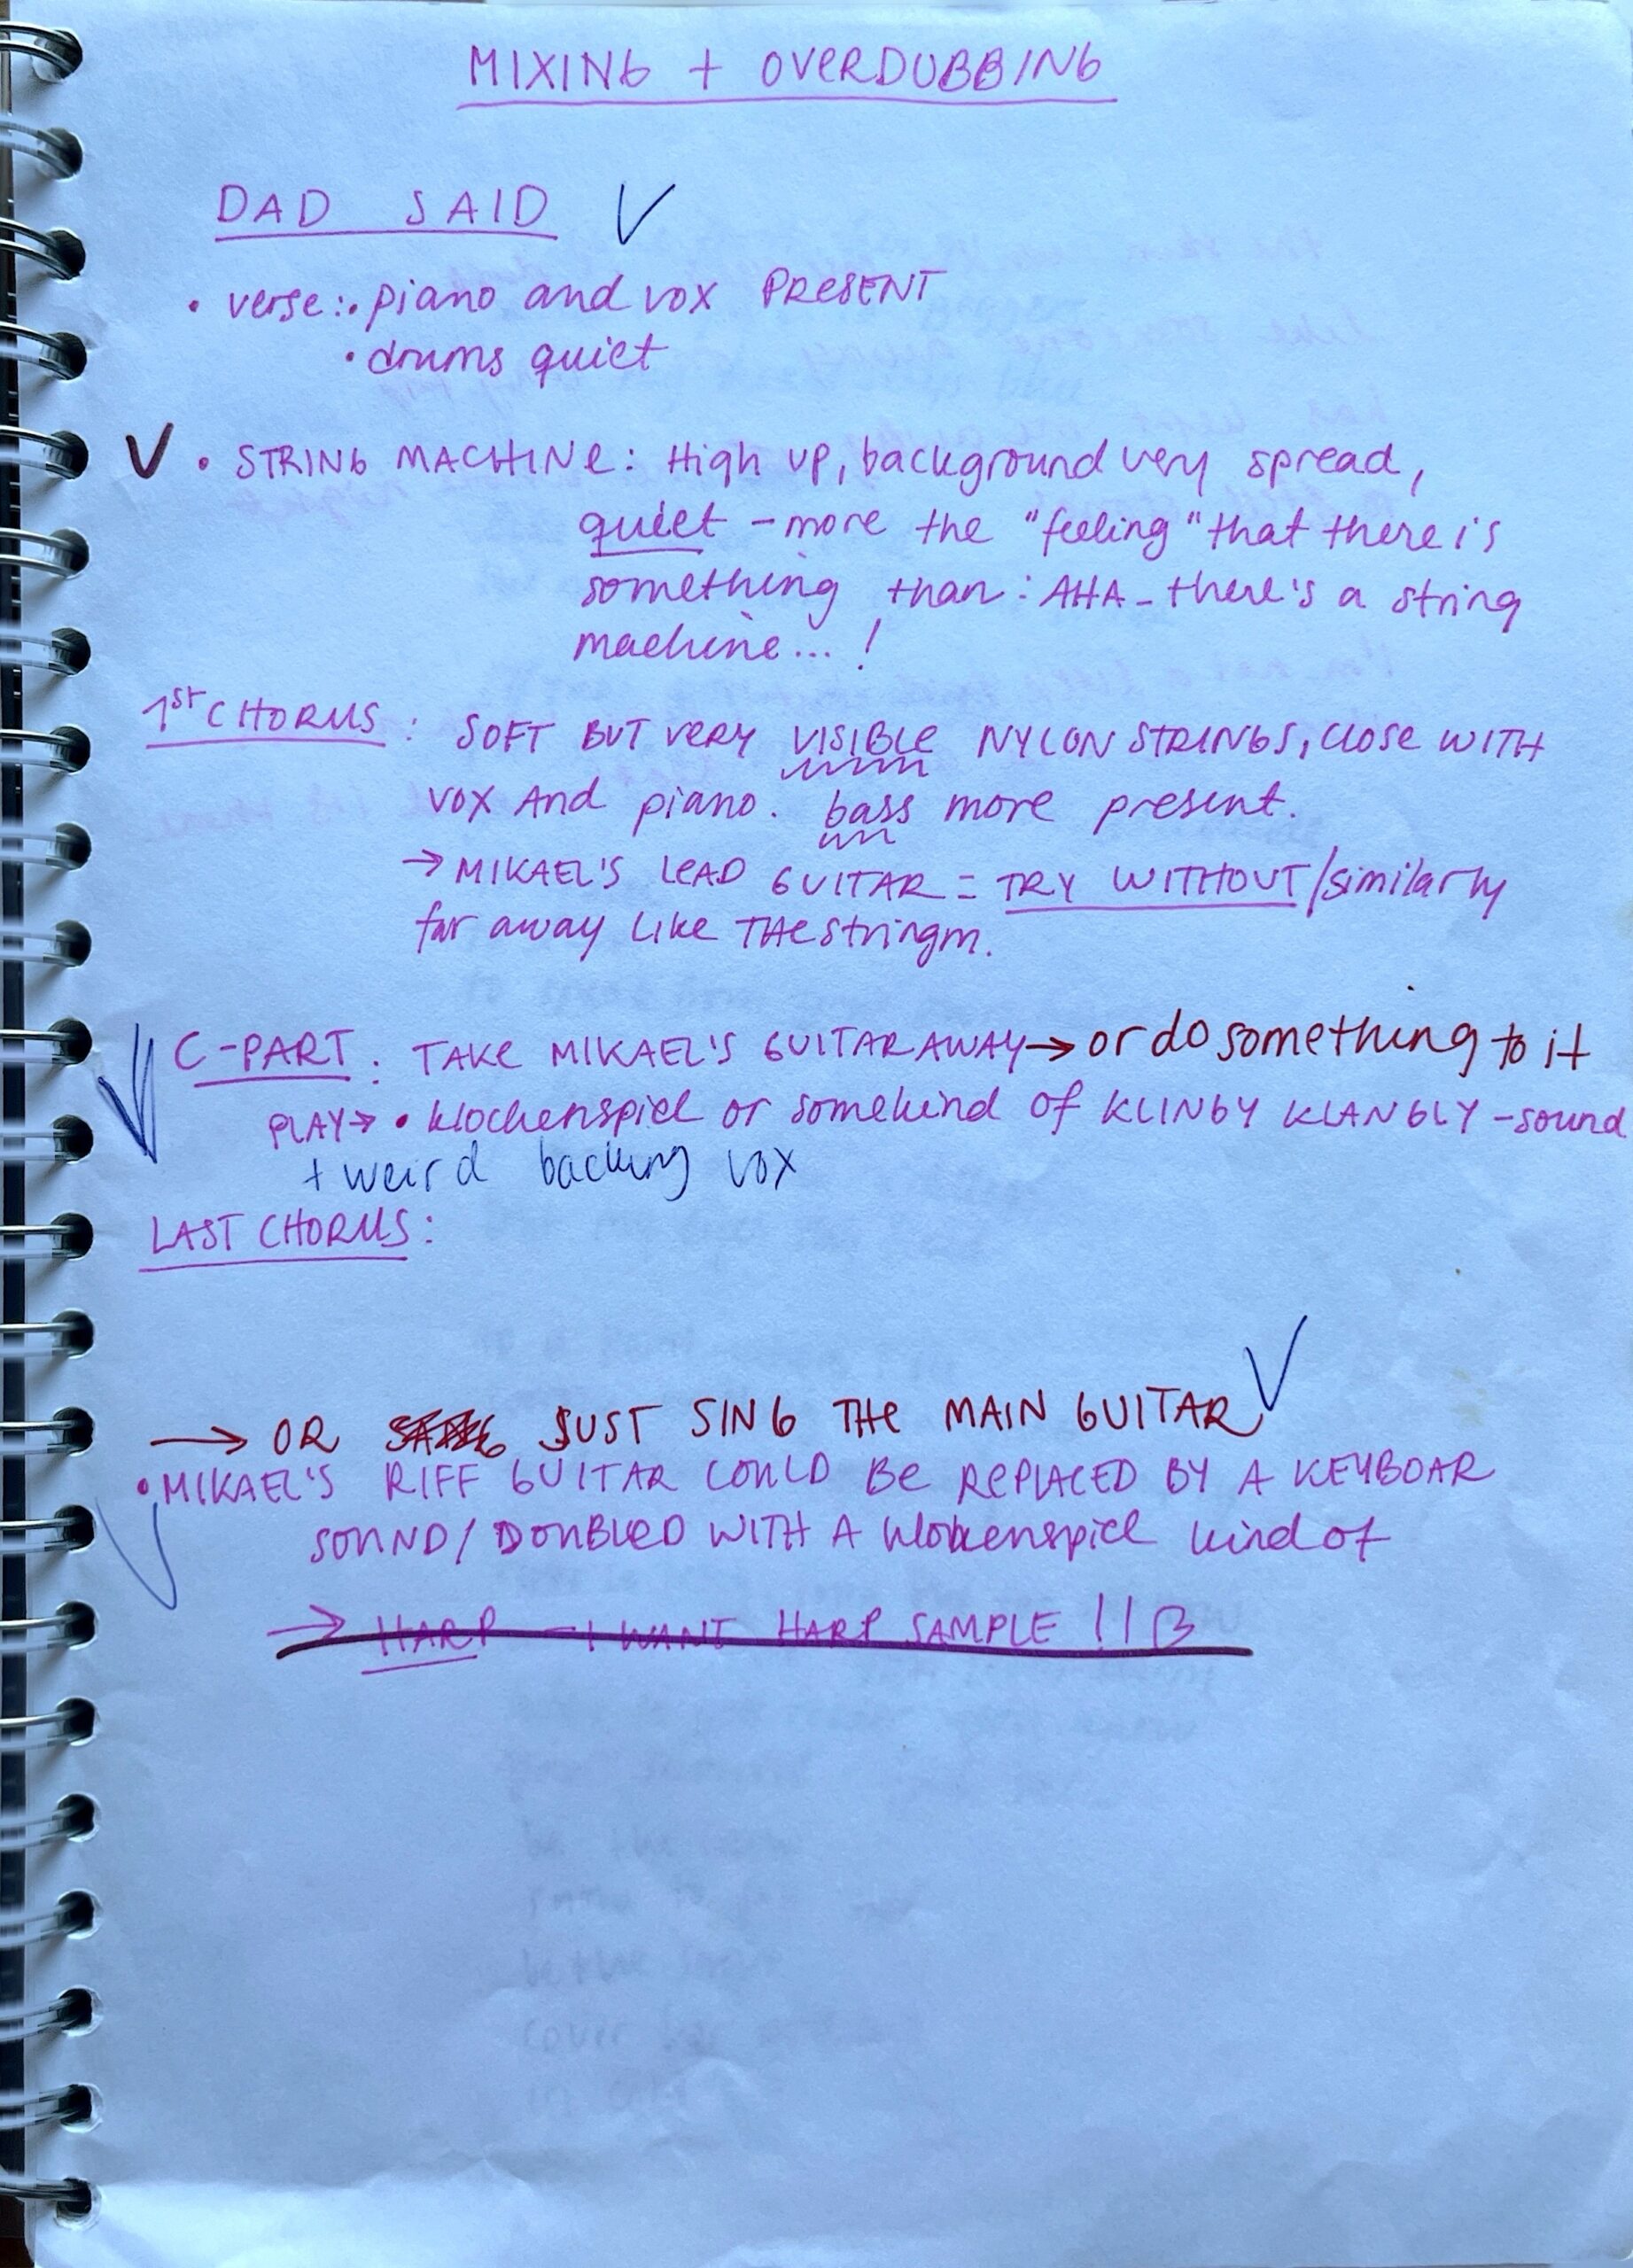 MIXING + OVERDUBBING
DAD SAID ✓
• verse: • piano and vox PRESENT
• drums quiet
✓ • STRING MACHINE: High up, background very spread,
quiet – more the "feeling" that there is
something than: AHA – there's a string
machine... !
1ST CHORUS: SOFT BUT very VISIBLE NYLON STRINGS, close WITH
vox And piano. bass more present.
→ MIKAEL'S LEAD GUITAR = TRY WITHOUT/similarly
far away like THE stringm.
C-PART: TAKE MIKAEL'S GUITAR AWAY → or do something to it
PLAY → • klockenspiel or somekind of KLINGY KLANGLY-sound
+ weird backing vox
LAST CHORUS:
→ OR JUST SING THE MAIN GUITAR ✓
• MIKAEL'S RIFF GUITAR COULD BE REPLACED BY A KEYBOAR
SOUND/DOUBLED WITH A klokenspiel kind of
→ HARP – I WANT HARP SAMPLE !!